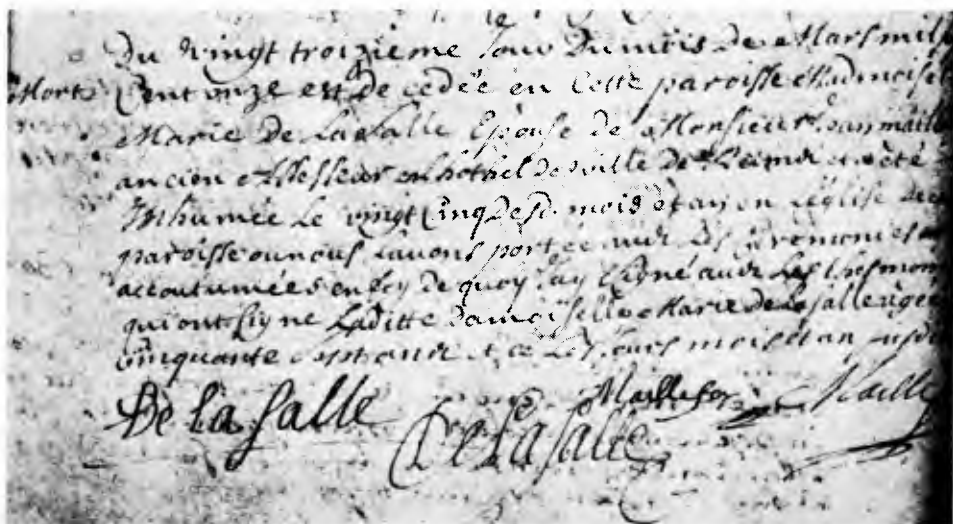 Du vingt troizieme Jour Du mois de Mars mil
Mort Cent onze est de cedée en Cette paroisse Madmoisel
Marie de La Salle Epouse de Monsieur Jean maille
ancien Assesseur en lhothel de ville de et a été
Inhumée Le vingt Cinq Desd. mois et an en Leglise de
paroisse ou nous Lavons portée avec Les Ceremonies
accoutumées en foy de quoy Jay signé avec Les thesmoin
qui ont signe Laditte Damoiselle Marie de La Salle agée
cinquante ans et ce Les Jours mois et an susd
De la Salle Maillefer Maille
De la Salle